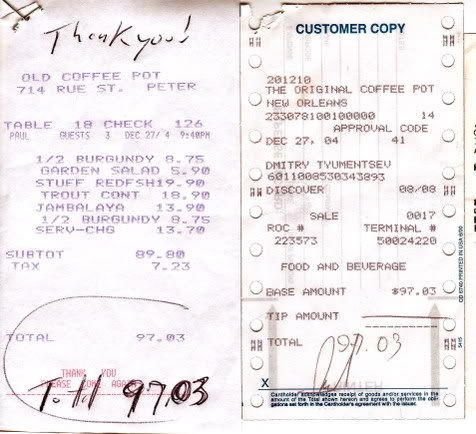 Thank you!
OLD COFFEE POT
714 RUE ST. PETER
TABLE 18 CHECK 126
PAUL GUESTS 3 DEC 27/ 4 9:40PM
1/2 BURGUNDY 8.75
GARDEN SALAD 5.90
STUFF REDFSH19.90
TROUT CONT 18.90
JAMBALAYA 13.90
1/2 BURGUNDY 8.75
SERV-CHG 13.70
SUBTOT 89.80
TAX 7.23
TOTAL 97.03
THANK YOU
PLEASE COME AGAIN
97.03
CUSTOMER COPY
201210
THE ORIGINAL COFFEE POT
NEW ORLEANS
233078100100000 14
APPROVAL CODE
DEC 27, 04 41
DMITRY TYUMENTSEV
6011008530343893
DISCOVER 08/08
SALE 0017
ROC # TERMINAL #
223573 50024220
FOOD AND BEVERAGE
BASE AMOUNT $97.03
TIP AMOUNT
TOTAL 97.03
X
Cardholder acknowledges receipt of goods and/or services in the
amount of the Total shown hereon and agrees to perform the obli-
gations set forth in the Cardholder's agreement with the issuer.